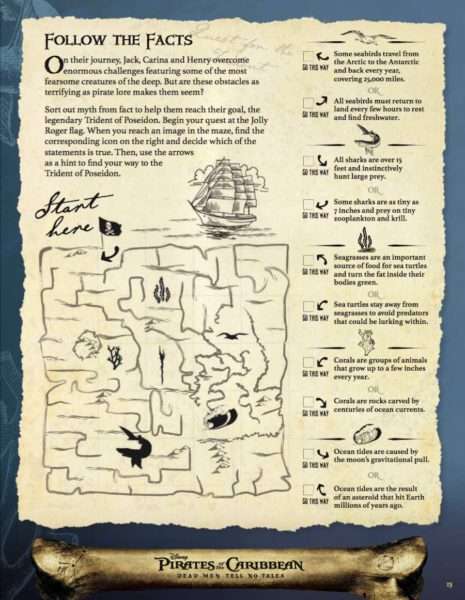 FOLLOW THE FACTS
On their journey, Jack, Carina and Henry overcome
enormous challenges featuring some of the most
fearsome creatures of the deep. But are these obstacles as
terrifying as pirate lore makes them seem?
Sort out myth from fact to help them reach their goal, the
legendary Trident of Poseidon. Begin your quest at the Jolly
Roger flag. When you reach an image in the maze, find the
corresponding icon on the right and decide which of the
statements is true. Then, use the arrows
as a hint to find your way to the
Trident of Poseidon.
Start
here
Some seabirds travel from
the Arctic to the Antarctic
and back every year,
covering 25,000 miles.
GO THIS WAY
OR
All seabirds must return to
land every few hours to rest
and find freshwater.
GO THIS WAY
All sharks are over 15
feet and instinctively
hunt large prey.
GO THIS WAY
OR
Some sharks are as tiny as
7 inches and prey on tiny
zooplankton and krill.
GO THIS WAY
Seagrasses are an important
source of food for sea turtles
and turn the fat inside their
bodies green.
GO THIS WAY
OR
Sea turtles stay away from
seagrasses to avoid predators
that could be lurking within.
GO THIS WAY
Corals are groups of animals
that grow up to a few inches
every year.
GO THIS WAY
OR
Corals are rocks carved by
centuries of ocean currents.
GO THIS WAY
Ocean tides are caused by
the moon's gravitational pull.
GO THIS WAY
OR
Ocean tides are the result
of an asteroid that hit Earth
millions of years ago.
GO THIS WAY
Disney
PIRATES OF THE CARIBBEAN
DEAD MEN TELL NO TALES